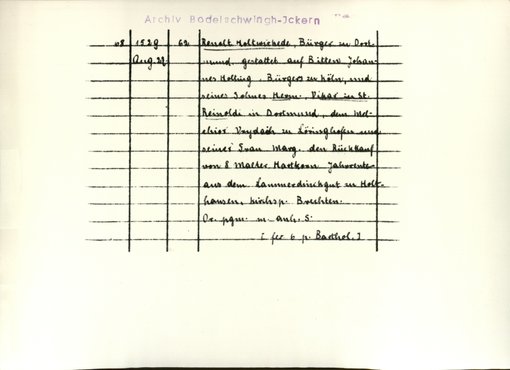 Archiv Bodelschwingh-Ickern
48 1529 62 Renolt Holtwickede, Bürger in Dort-
Aug. 29. mund, gestattet auf Bitten Johan-
nes Holting, Bürgers zu Köln, und
seines Sohnes Herm., Vikar in St.
Reinoldi in Dortmund, dem Mel-
chior in Löringhofen und
seiner Frau Marg. den Rückkauf
von 8 Malter Hartkorn Jahrrente
aus dem gut in Holt-
hausen, Kirchsp. Brechten.
Or. pgm. m. anh. S.
[fer 6 p. Barthol.]